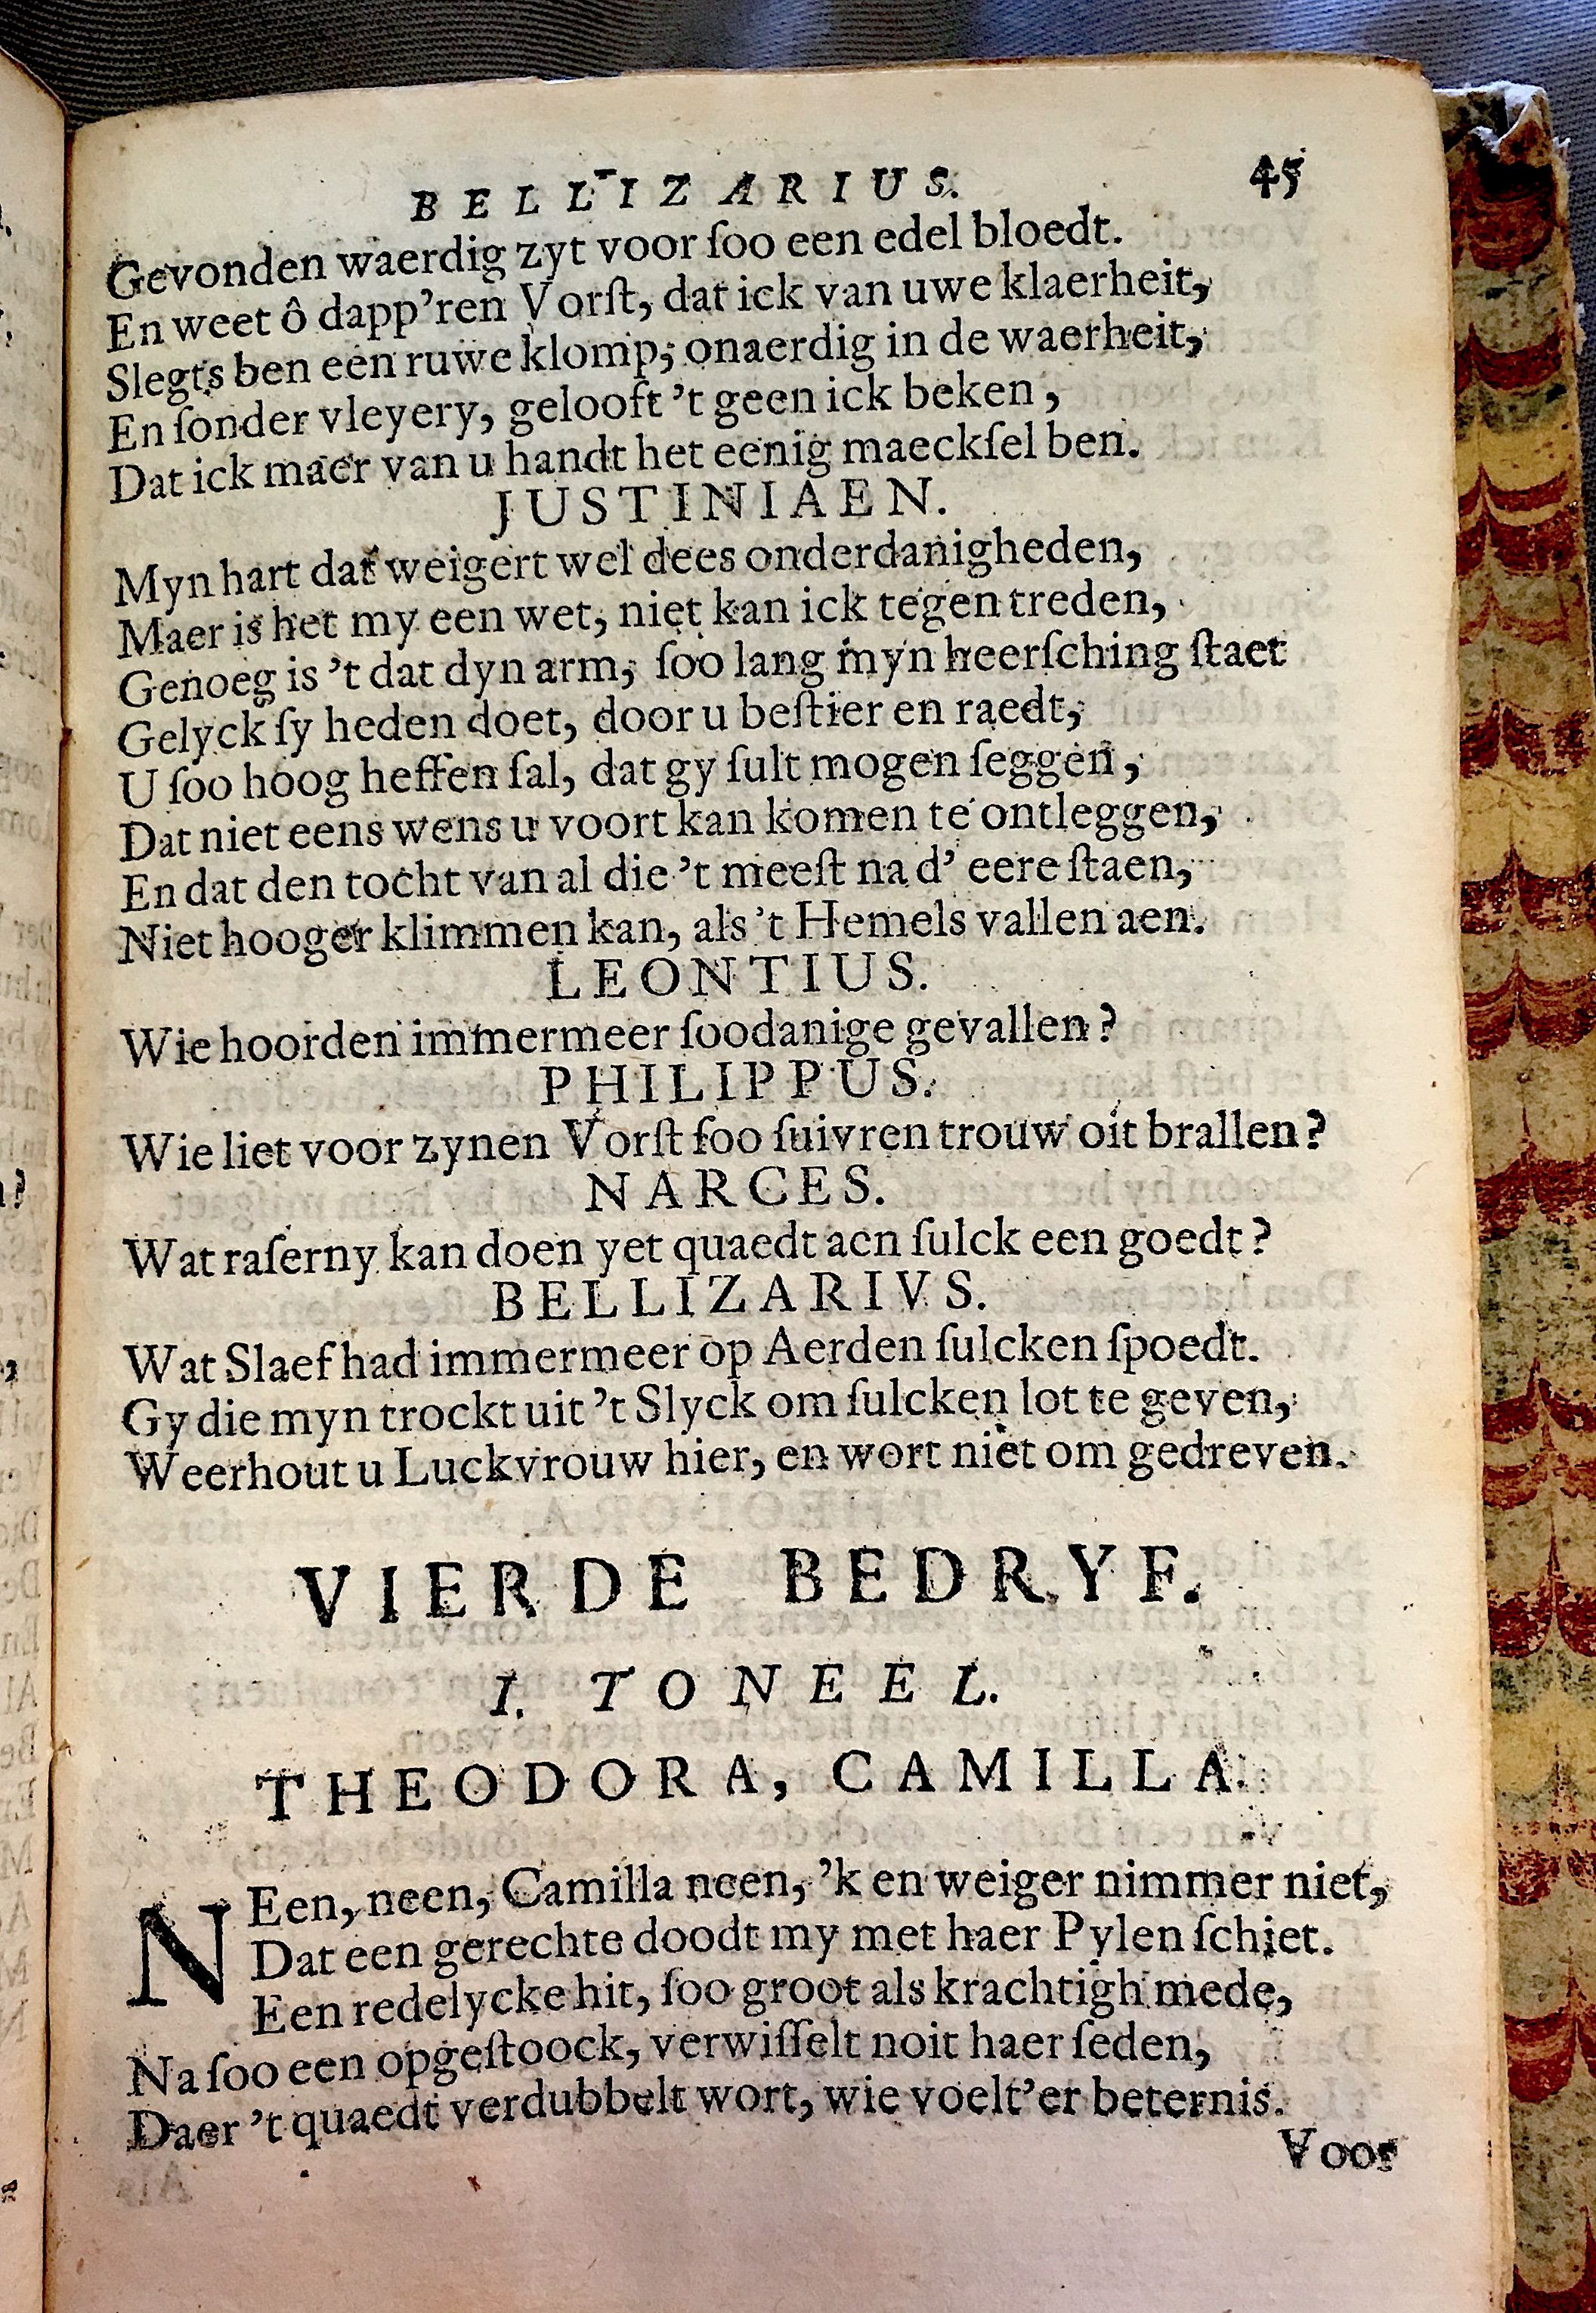 BELLIZARIUS. 45
Gevonden waerdig zyt voor ſoo een edel bloedt.
En weet ô dapp'ren Vorſt, dat ick van uwe klaerheit,
Slegts ben een ruwe klomp, onaerdig in de waerheit,
En ſonder vleyery, gelooft 't geen ick beken,
Dat ick maer van u handt het eenig maeckſel ben.
JUSTINIAEN.
Myn hart dat weigert wel dees onderdanigheden,
Maer is het my een wet, niet kan ick tegen treden,
Genoeg is 't dat dyn arm, ſoo lang myn heerſching ſtaet
Gelyck ſy heden doet, door u beſtier en raedt,
U ſoo hoog heffen ſal, dat gy ſult mogen ſeggen,
Dat niet eens wens u voort kan komen te ontleggen,
En dat den tocht van al die 't meeſt na d' eere ſtaen,
Niet hooger klimmen kan, als 't Hemels vallen aen.
LEONTIUS.
Wie hoorden immermeer ſoodanige gevallen?
PHILIPPUS.
Wie liet voor zynen Vorſt ſoo ſuivren trouw oit brallen?
NARCES.
Wat raſerny kan doen yet quaedt aen ſulck een goedt?
BELLIZARIVS.
Wat Slaef had immermeer op Aerden ſulcken ſpoedt.
Gy die myn trockt uit 't Slyck om ſulcken lot te geven,
Weerhout u Luckvrouw hier, en wort niet om gedreven.
VIERDE BEDRYF.
I. TONEEL.
THEODORA, CAMILLA.
NEen, neen, Camilla neen, 'k en weiger nimmer niet,
Dat een gerechte doodt my met haer Pylen ſchiet.
Een redelycke hit, ſoo groot als krachtigh mede,
Na ſoo een opgeſtoock, verwiſſelt noit haer ſeden,
Daer 't quaedt verdubbelt wort, wie voelt'er beternis.
Voor